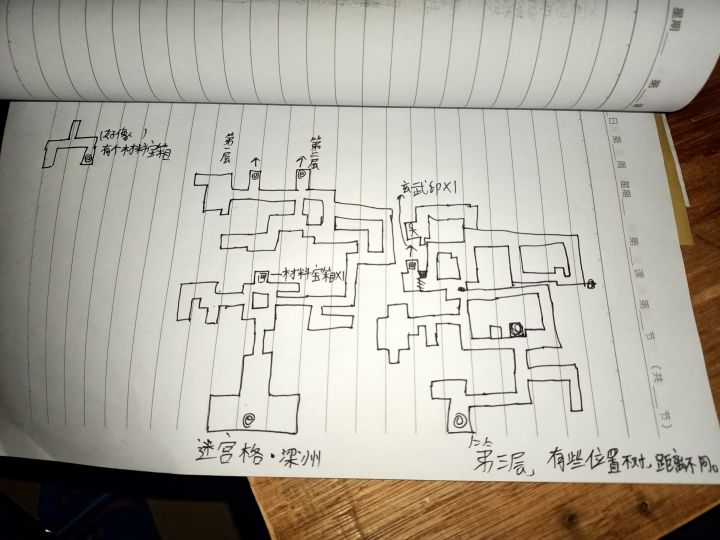 星期
第
日 第 周 星期 第 课 第 节 (共 节)
(好像)
有个材料宝箱
第一层
第二层
玄武印X1
材料宝箱X1
迷宫格·梁州
第三层
有些位置不对,距离不同。